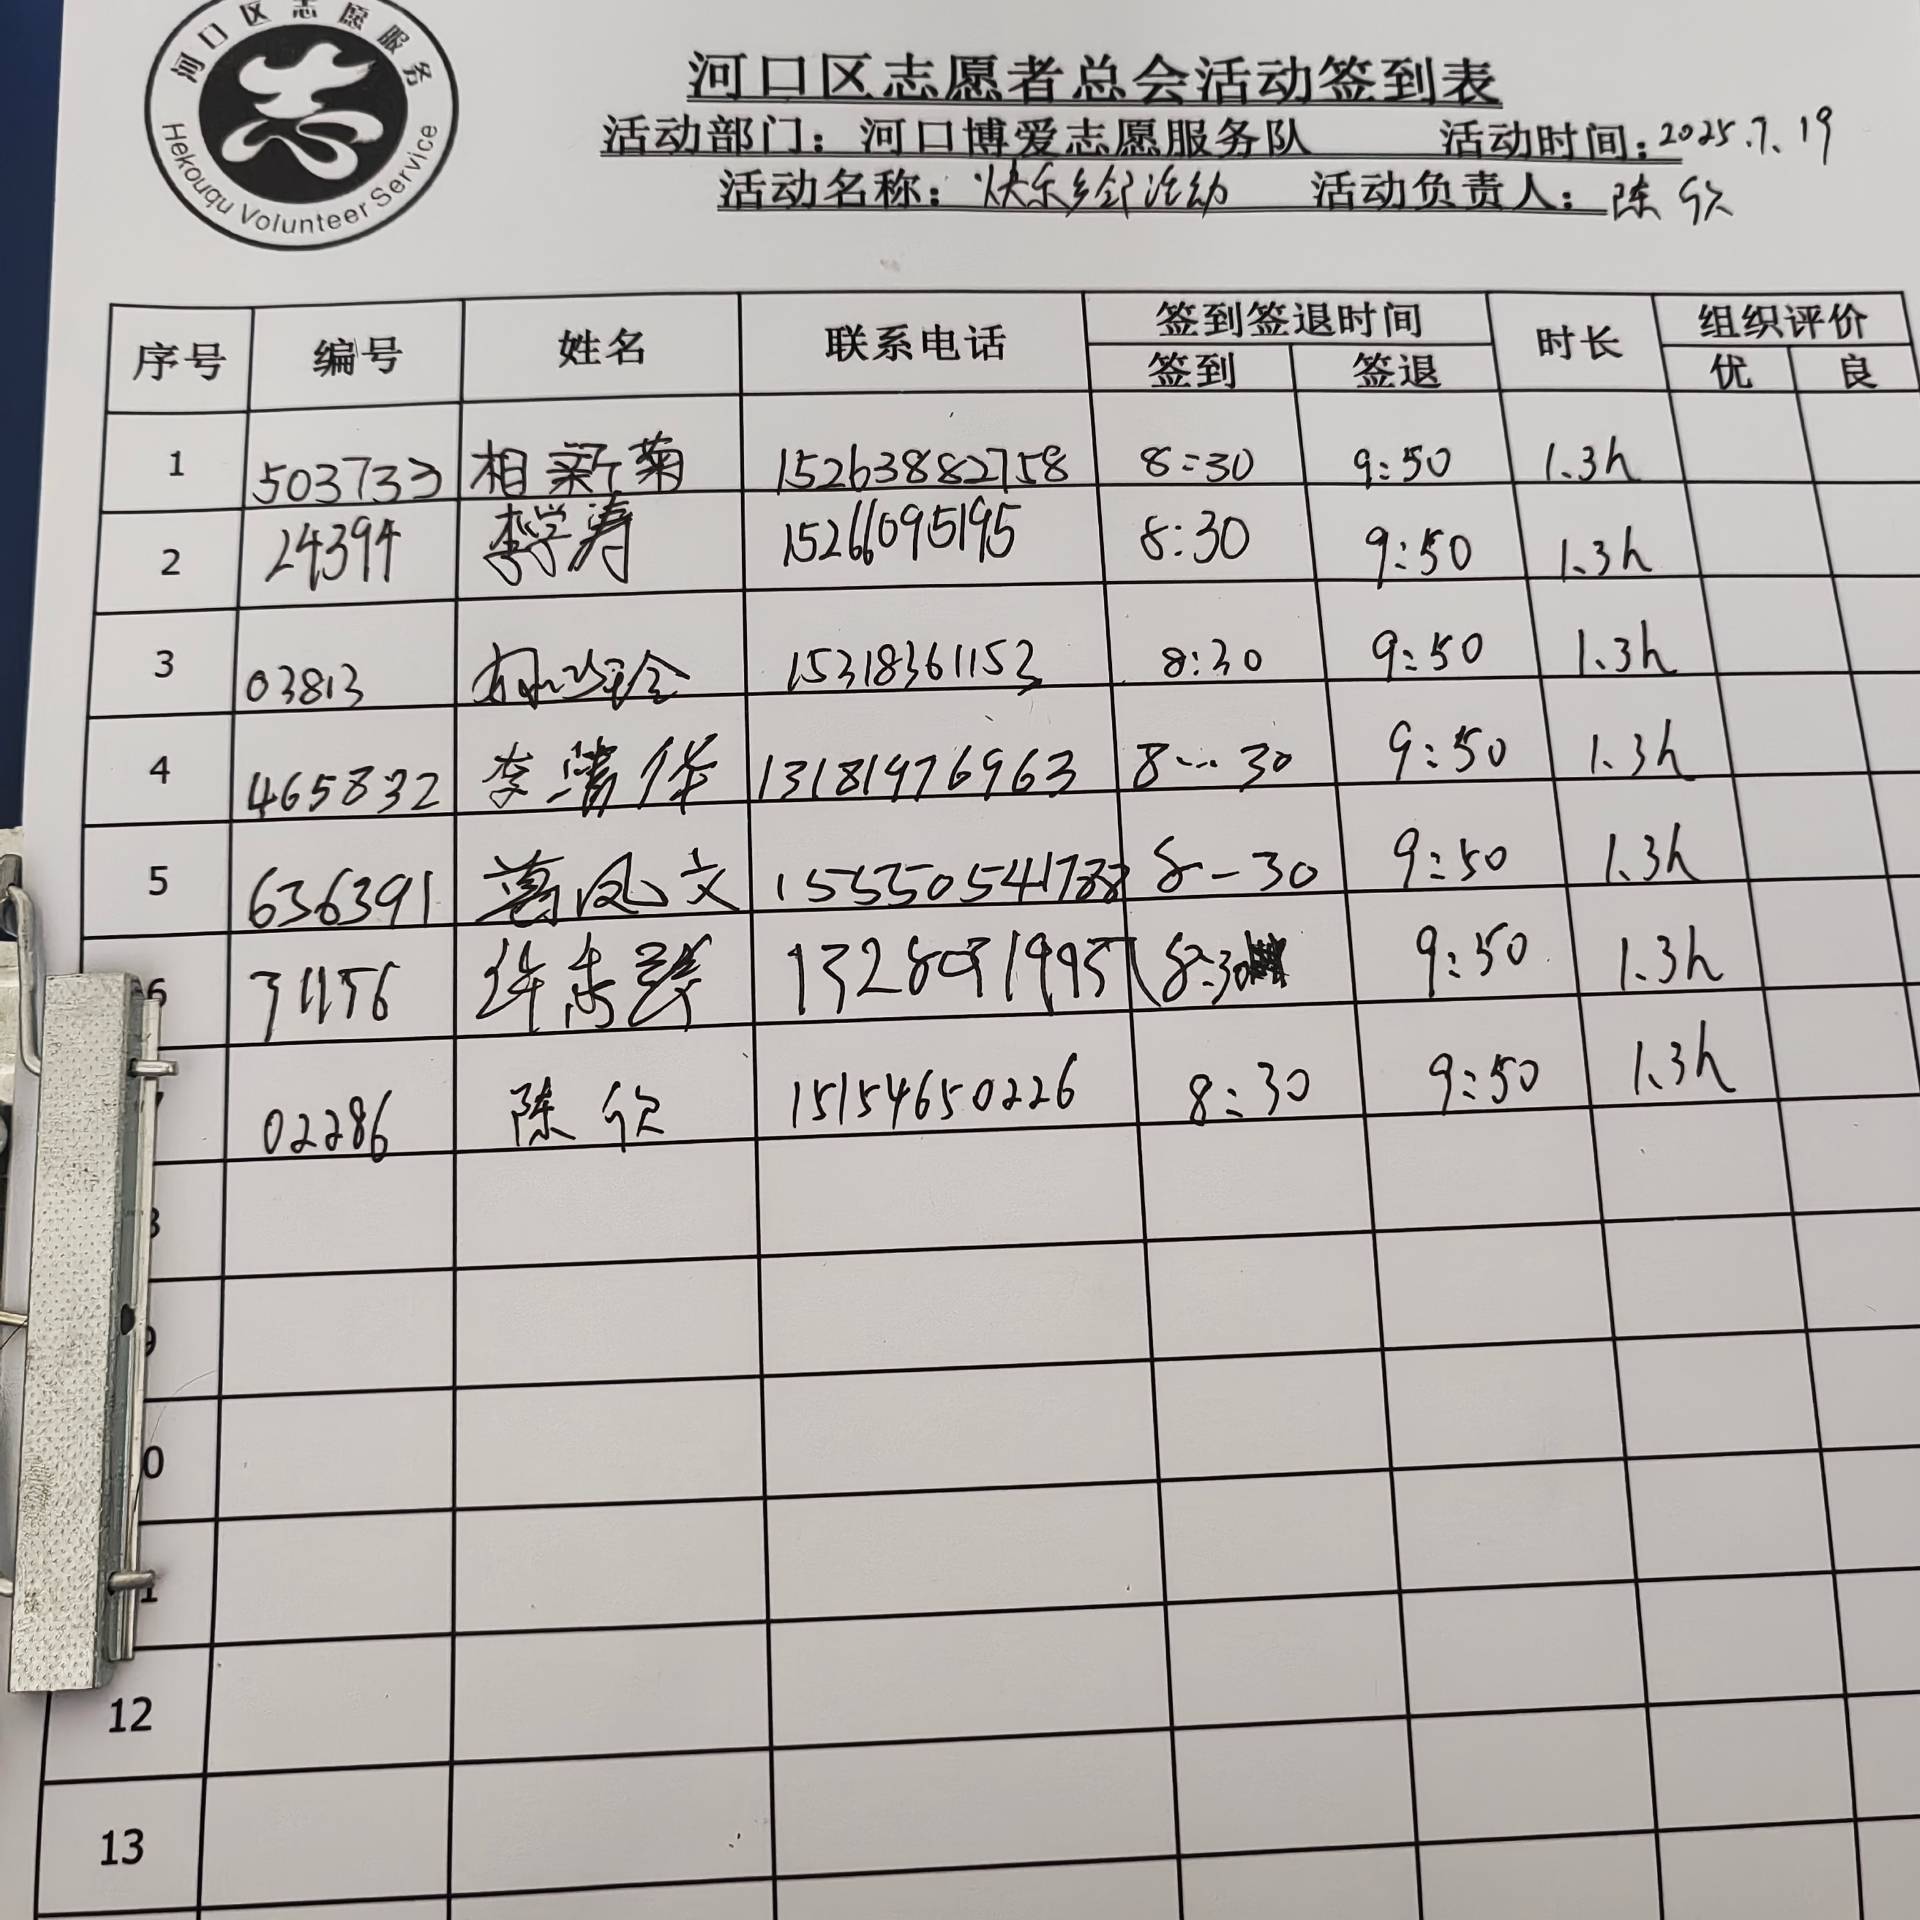 河口区志愿服务
Hekouqu Volunteer Service
河口区志愿者总会活动签到表
活动部门：河口博爱志愿服务队 活动时间：2025.7.19
活动名称：快乐 活动 活动负责人：陈欣
序号 编号 姓名 联系电话 签到签退时间 时长 组织评价
签到 签退 优 良
1 503733 相新菊 15263882758 8:30 9:50 1.3h
2 24394 李学涛 15266095195 8:30 9:50 1.3h
3 03813 15318361153 8:30 9:50 1.3h
4 465832 李 华 13181976963 8--30 9:50 1.3h
5 636391 葛凤文 8-30 9:50 1.3h
6 许 8:30 9:50 1.3h
7 02286 陈欣 15154650226 8:30 9:50 1.3h
8
9
0
1
12
13